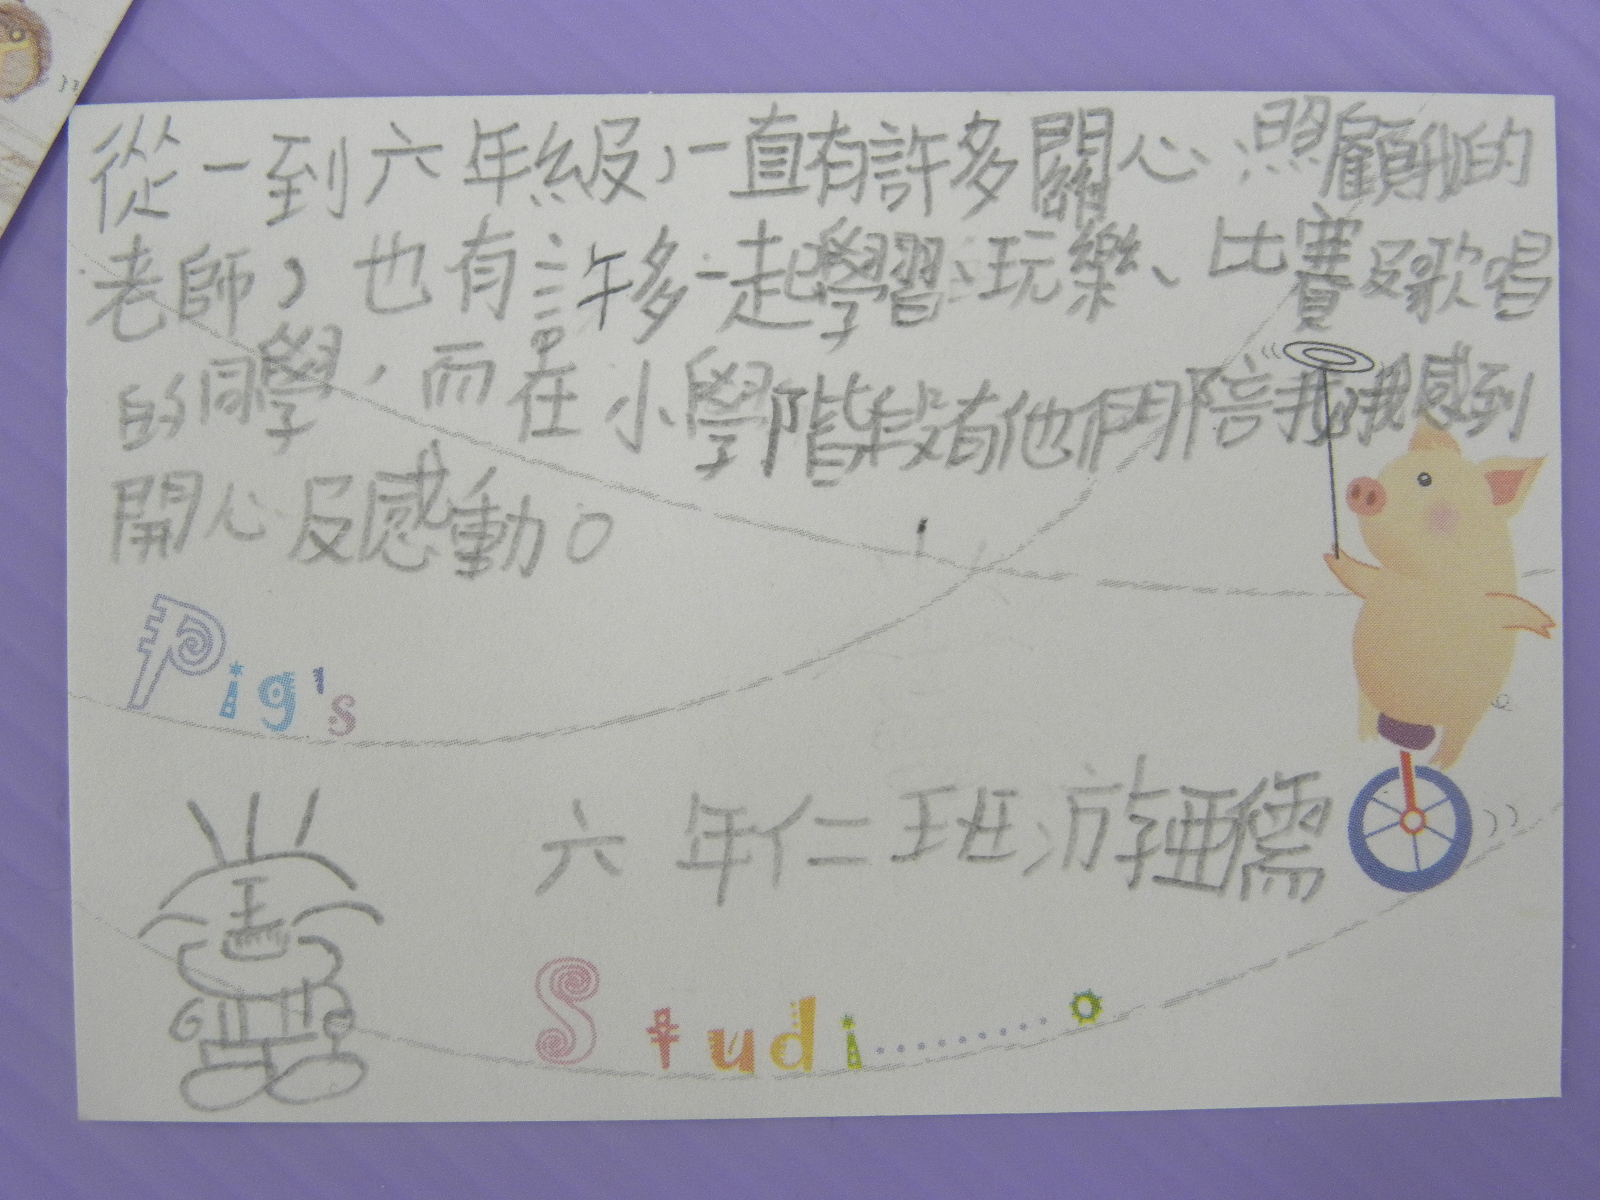 從一到六年級，一直有許多關心、照顧我的
老師，也有許多一起學習、玩樂、比賽及歌唱
的同學，而在小學階段有他們陪我，我感到
開心及感動。
Pig's
六年仁班游
Studi.........o